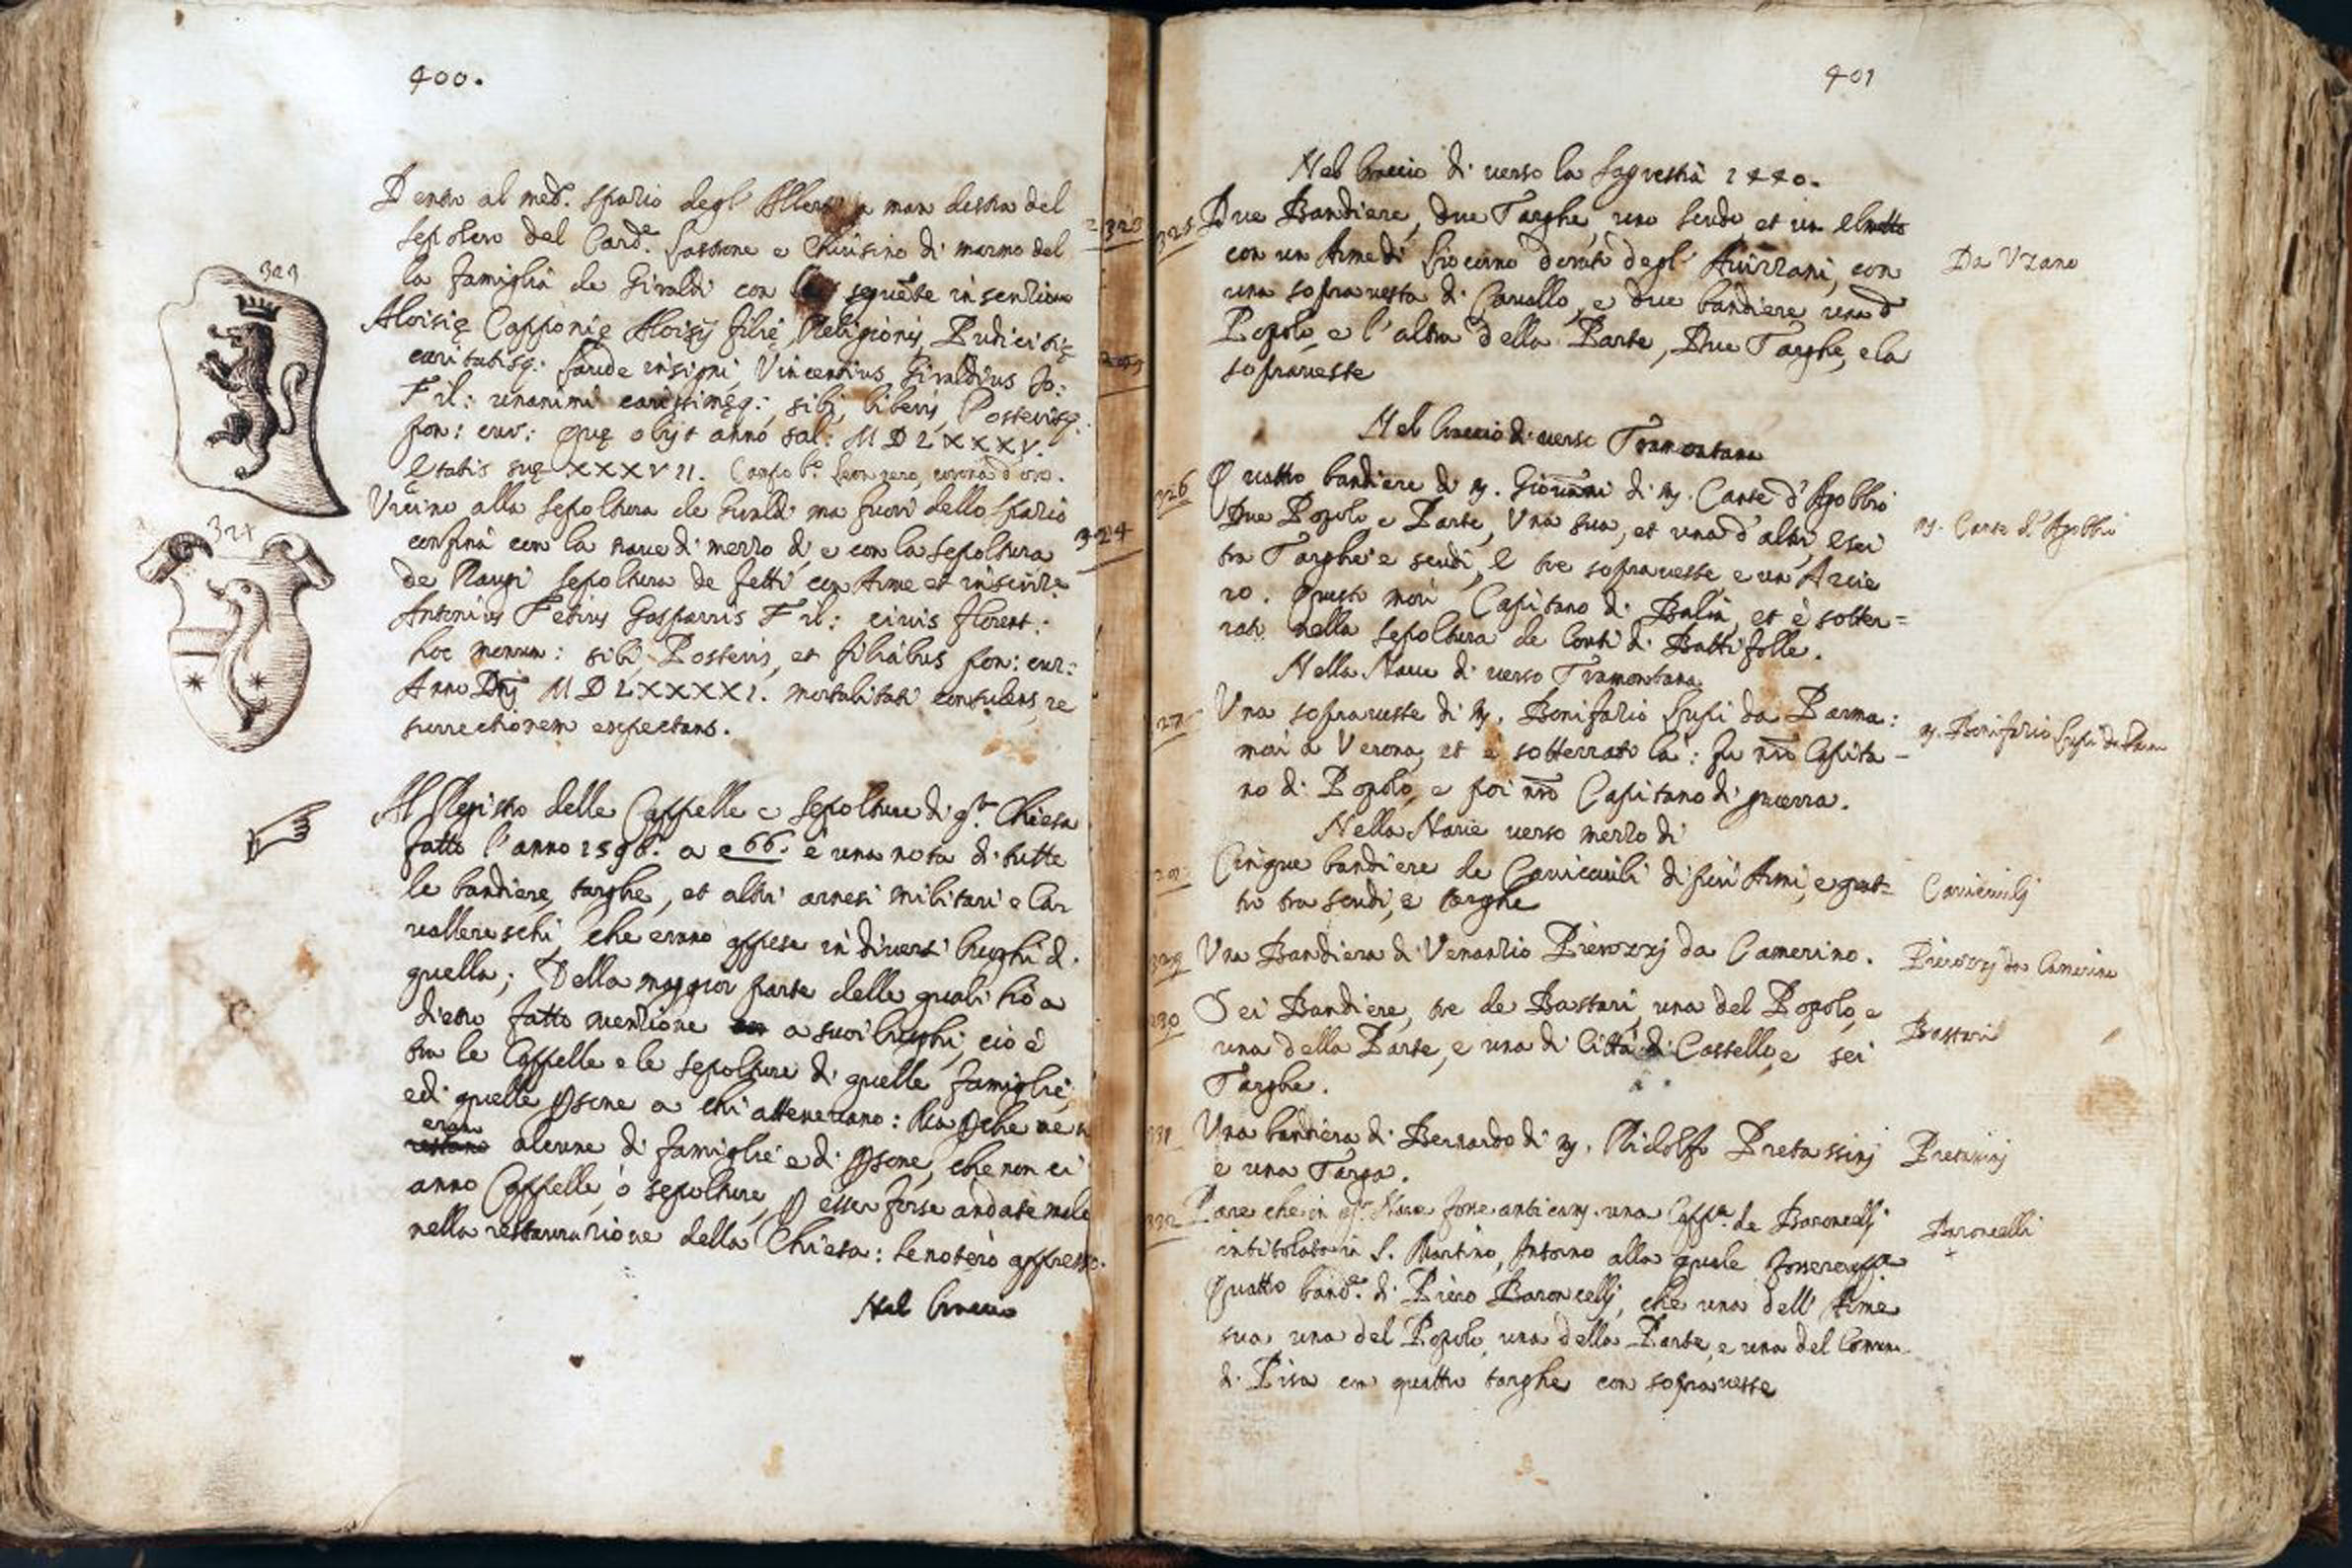 400.
Dentro al med.º spazio degl' Alber a man destra del
sepolcro del Card.e Sassone e Chiusino di marmo del
la famiglia de Giraldi con la seguēte inscrizione
323
Aloisię Capponię Aloisij filię, Religionis, Pudicitię
caritatisq: laude insigni, Vincentius Giraldius Jo:
Fil: unanimi carissimęq: sibi, liberis, Posterisq.
pon: cur: Quę obijt anno sal: M D L X X X V.
Ętatis suę X X X V I I. Campo b.º Leon nero, corona d'oro.
Vicino alla sepoltura de Giraldi ma fuori dello spazio
confina con la naue di mezzo di e con la sepoltura
324
de Raugi sepoltura de Fetti con Arme et inscriz.e
Antonius Fetius Gasparris Fil: ciuis florent:
hoc monum: sibi, Posteris, et filiabus pon: cur:
Anno Dnj M D L X X X X I. mortalitati consulens, re
surrectionem expectans.
Al Registro delle Cappelle e Sepolture di q.ta Chiesa
fatto l'anno 1596. a c 66. è una nota di tutte
le bandiere, targhe, et altri arnesi militari e Ca
vallereschi, che erano appese in diversi luoghi d.
quella; Della maggior parte delle quali hò a
dietro fatto menzione a suoi luoghi, cioè
tra le Cappelle e le sepolture di quelle famiglie,
e di quelle psone a chi attenevano: Ma pche ne n
eran
restano alcune di famiglie e di psone, che non ci
anno Cappelle, ò sepolture, p esser forse andate male
nella restaurazione della Chiesa: le noterò appresso.
Nel braccio
401
Nel braccio di verso la Sagrestia 1440.
325 Due Bandiere, due Targhe, uno scudo, et un elmetto
con un Arme di Liocorno dorato degl' Auizzani, con
Da Vzano
una sopravesta di Cavallo, e due bandiere una d
Popolo, e l'altra della Parte, Due Targhe, e la
sopraveste
Nel braccio di verso Tramontana
326 Quattro bandiere di m. Giovanni di m. Cante d'Agobbio
Due Popolo e Parte, Una sua, et una d'altri, e sei
m. Cante d'Agobbio
tra Targhe e scudi, e tre sopraveste, e un' Arcie
ro. Questo morì Capitano di Balia, et è sotter=
rato nella sepoltura de Conti di Battifolle.
Nella Naue di verso Tramontana
27 Una sopraveste di m. Bonifazio Lupi da Parma:
m. Bonifazio Lupi da Parma
morì a Verona, et è sotterrato là: fu nr̄o Capita
no di Popolo, e poi nr̄o Capitano di guerra.
Nella Naue verso mezzo di
Cinque bandiere de Cavicciuli di piu Armi, e quat=
Cavicciulj
tro tra scudi, e targhe
329 Una Bandiera di Venanzio Pierozzj da Camerino.
Pierozzj da Camerino
330 Sei Bandiere, tre de Bastari, una del Popolo, e
Bastari
una della Parte, e una di Città di Castello, e sei
Targhe.
331 Una bandiera di Bernardo di m. Ridolfo Pretassinj
Pretasinj
e una Targa.
332 Pare che in q.ta Naue fosse anticam. una Capp.a de Baroncellj
Baroncelli
intitolata in S. Martino, Intorno alla quale fossero appe
Quattro band.e di Piero Baroncellj, che una dell' Arme
sua, una del Popolo, una della Parte, e una del Comun
di Pisa con quattro targhe con sopraveste